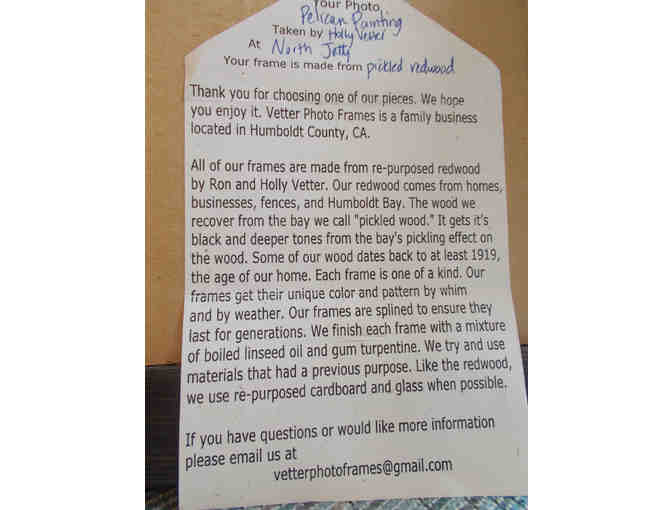 Your Photo
Pelican Painting
Taken by Holly Vetter
At North Jetty
Your frame is made from pickled redwood
Thank you for choosing one of our pieces. We hope
you enjoy it. Vetter Photo Frames is a family business
located in Humboldt County, CA.
All of our frames are made from re-purposed redwood
by Ron and Holly Vetter. Our redwood comes from homes,
businesses, fences, and Humboldt Bay. The wood we
recover from the bay we call "pickled wood." It gets it's
black and deeper tones from the bay's pickling effect on
the wood. Some of our wood dates back to at least 1919,
the age of our home. Each frame is one of a kind. Our
frames get their unique color and pattern by whim
and by weather. Our frames are splined to ensure they
last for generations. We finish each frame with a mixture
of boiled linseed oil and gum turpentine. We try and use
materials that had a previous purpose. Like the redwood,
we use re-purposed cardboard and glass when possible.
If you have questions or would like more information
please email us at
vetterphotoframes@gmail.com